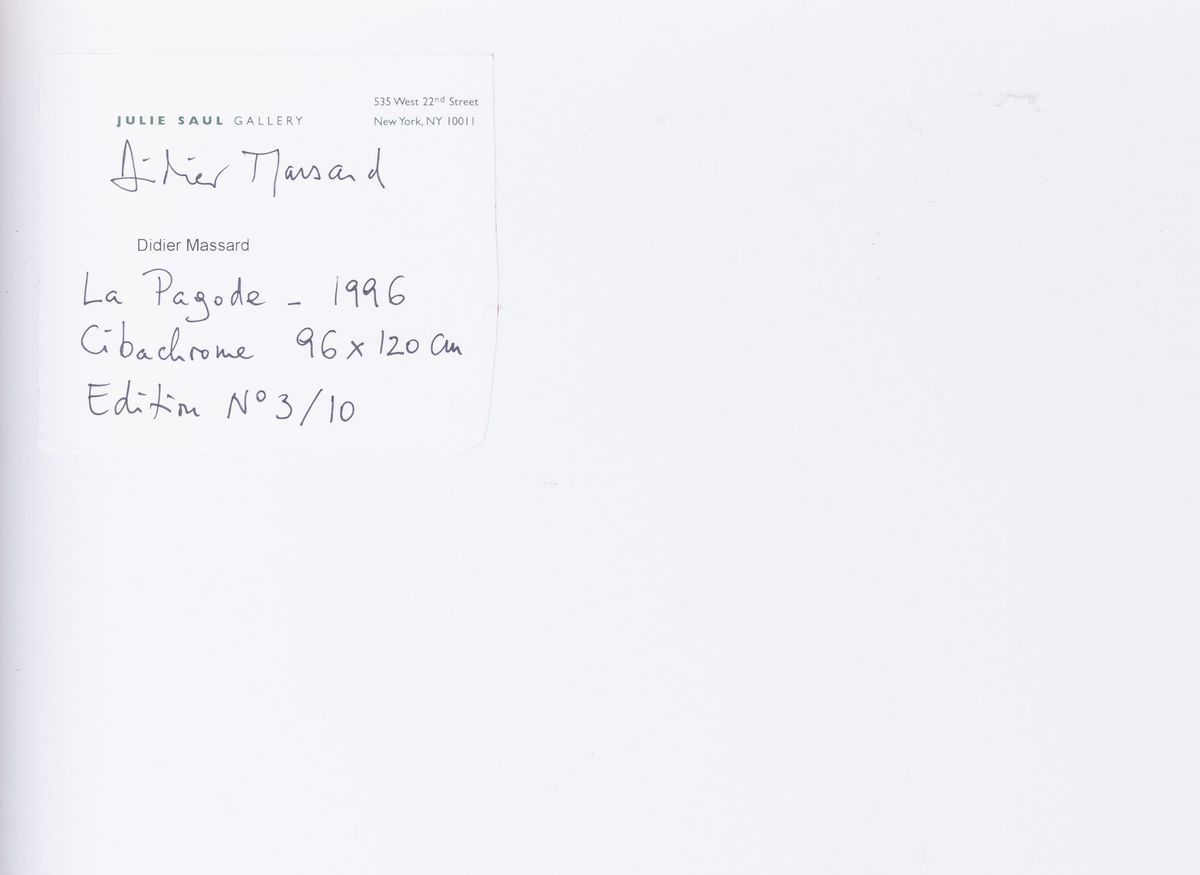 535 West 22nd Street
JULIE SAUL GALLERY
New York, NY 10011
Didier Massard
Didier Massard
La Pagode - 1996
Cibachrome 96 x 120 cm
Edition N° 3/10